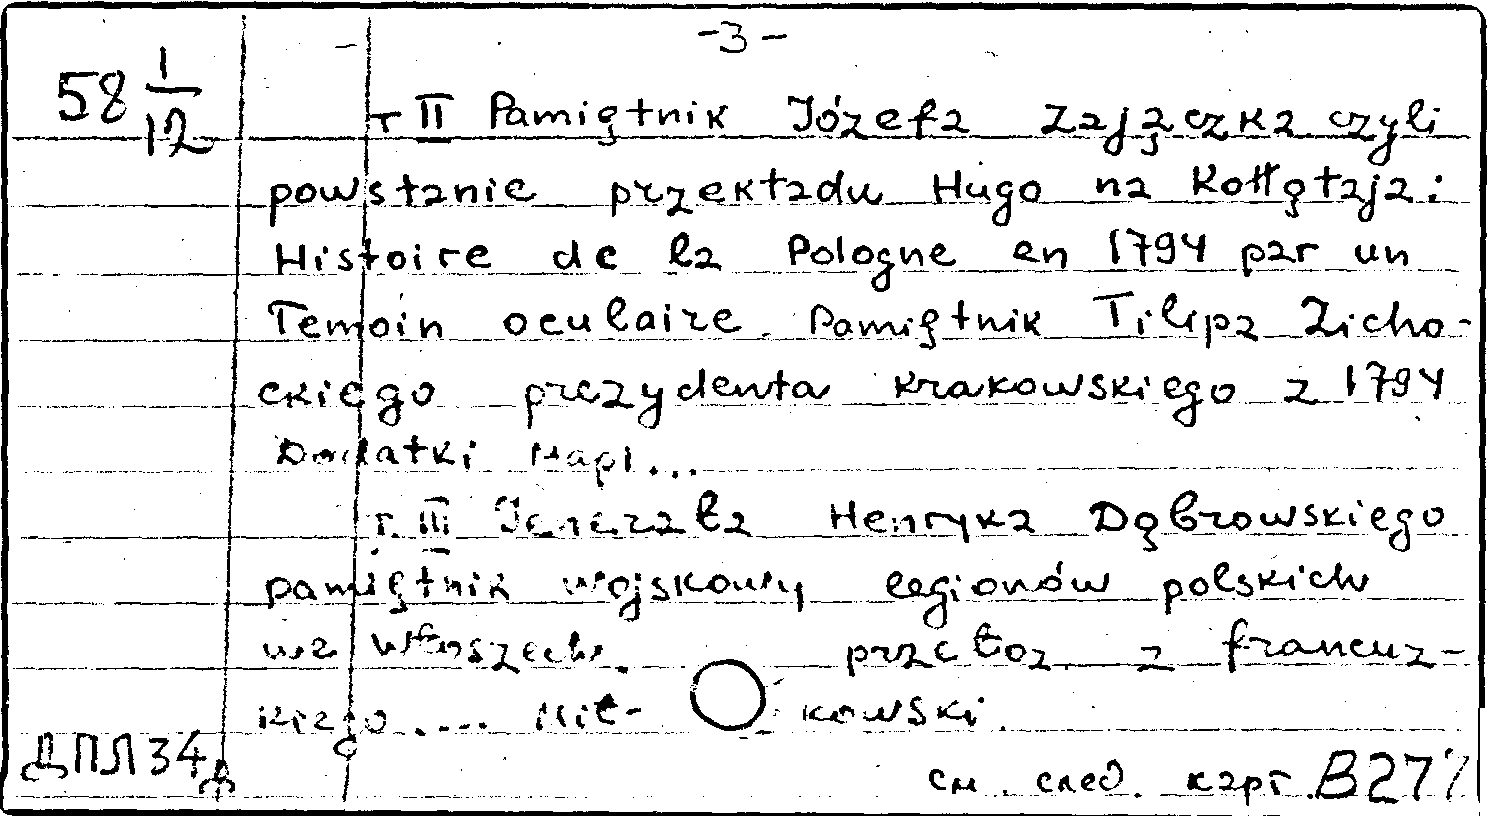 -3-
58 1/12
т II Pamiętnik Józefa Zajączka czyli
powstanie przekładu Hugo na Kołłątaja:
Histoire de la Pologne en 1794 par un
Temoin oculaire. Pamiętnik Filipa Licho-
ckiego prezydenta krakowskiego z 1794
Dodatki Napi...
т. III Jenerała Henryka Dąbrowskiego
pamiętnik wojskowy legionów polskich
we Włoszech. przełoz. z francuz-
kiego .... Mił- kowski.
ДПЛ 34д
см. след. карт. В277